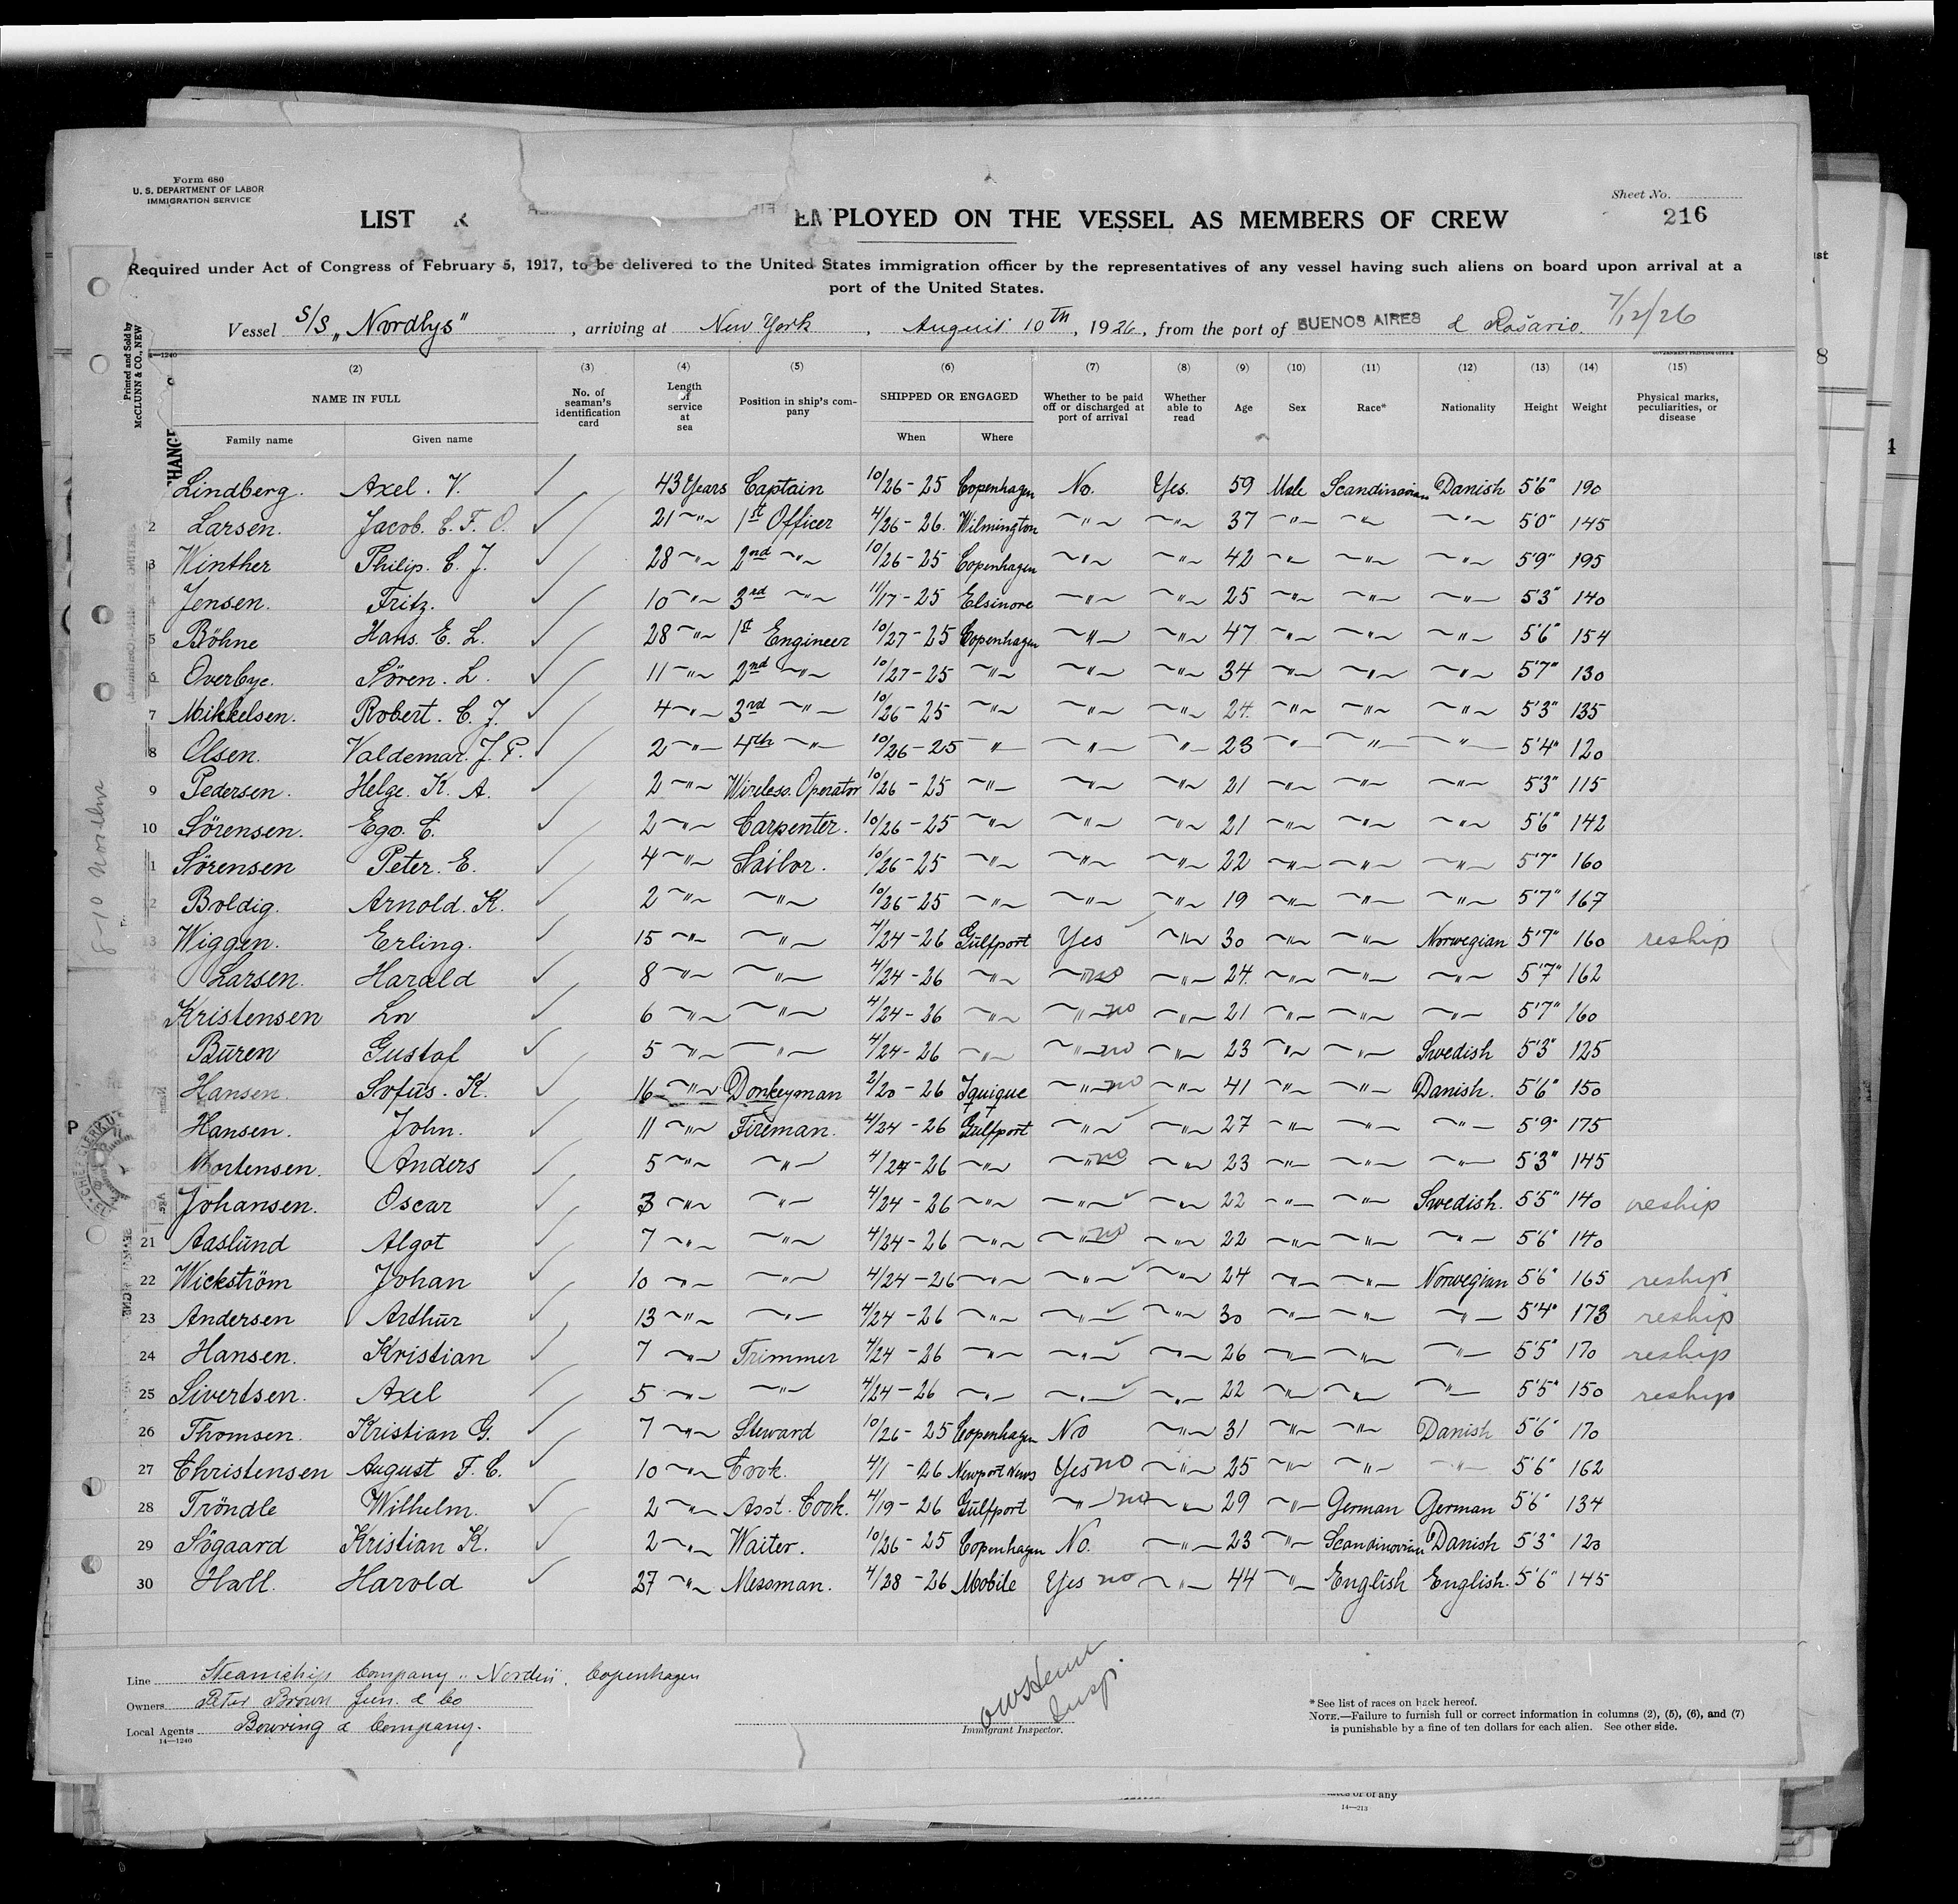 Form 680
U. S. DEPARTMENT OF LABOR
IMMIGRATION SERVICE
Sheet No.
216
LIST EMPLOYED ON THE VESSEL AS MEMBERS OF CREW
Required under Act of Congress of February 5, 1917, to be delivered to the United States immigration officer by the representatives of any vessel having such aliens on board upon arrival at a
port of the United States.
Vessel S/S „Nordlys" , arriving at New York , August 10th, 1926, from the port of BUENOS AIRES & Rosario. 7/12/26
Printed and Sold by
McCLUNN & CO., NEW
(2) (3) (4) (5) (6) (7) (8) (9) (10) (11) (12) (13) (14) (15)
NAME IN FULL No. of seaman's identification card Length of service at sea Position in ship's company SHIPPED OR ENGAGED Whether to be paid off or discharged at port of arrival Whether able to read Age Sex Race* Nationality Height Weight Physical marks, peculiarities, or disease
Family name Given name When Where
Lindberg. Axel. V. 43 Years Captain 10/26-25 Copenhagen No. Yes. 59 Male Scandinavian Danish 5'6" 190
2 Larsen. Jacob. C. F. O. 21 ~"~ 1st Officer 4/26-26. Wilmington ~"~ ~"~ 37 ~"~ ~"~ ~"~ 5'0" 145
3 Winther Philip. C. J. 28 ~"~ 2nd ~"~ 10/26-25 Copenhagen ~"~ ~"~ 42 ~"~ ~"~ ~"~ 5'9" 195
4 Jensen. Fritz. 10 ~"~ 3rd ~"~ 11/17-25 Elsinore ~"~ ~"~ 25 ~"~ ~"~ ~"~ 5'3" 140
5 Böhne Hans. E. L. 28 ~"~ 1st Engineer 10/27-25 Copenhagen ~"~ ~"~ 47 ~"~ ~"~ ~"~ 5'6" 154
6 Overbye. Sören. L. 11 ~"~ 2nd ~"~ 10/27-25 ~"~ ~"~ ~"~ 34 ~"~ ~"~ ~"~ 5'7" 130
7 Mikkelsen. Robert. C. J. 4 ~"~ 3rd ~"~ 10/26-25 ~"~ ~"~ ~"~ 24. ~"~ ~"~ ~"~ 5'3" 135
8 Olsen. Valdemar. J. P. 2 ~"~ 4th ~"~ 10/26-25 ~"~ ~"~ ~"~ 23 ~"~ ~"~ ~"~ 5'4" 120
9 Pedersen. Helge. K. A. 2 ~"~ Wireless. Operator 10/26-25 ~"~ ~"~ ~"~ 21 ~"~ ~"~ ~"~ 5'3" 115
10 Sörensen. Ego. C. 2 ~"~ Carpenter. 10/26-25 ~"~ ~"~ ~"~ 21 ~"~ ~"~ ~"~ 5'6" 142
1 Sörensen Peter. E. 4 ~"~ Sailor. 10/26-25 ~"~ ~"~ ~"~ 22 ~"~ ~"~ ~"~ 5'7" 160
2 Boldig. Arnold. K. 2 ~"~ ~"~ 10/26-25 ~"~ ~"~ ~"~ 19 ~"~ ~"~ ~"~ 5'7" 167
13 Wiggen. Erling. 15 ~"~ ~"~ 4/24-26 Gulfport Yes ~"~ 30 ~"~ ~"~ Norwegian 5'7" 160 reship
Larsen. Harald 8 ~"~ ~"~ 4/24-26 ~"~ ~"~ no ~"~ 24. ~"~ ~"~ ~"~ 5'7" 162
Kristensen 6 ~"~ ~"~ 4/24-26 ~"~ ~"~ no ~"~ 21 ~"~ ~"~ ~"~ 5'7" 160
Büren Gustaf 5 ~"~ ~"~ 4/24-26 ~"~ ~"~ no ~"~ 23 ~"~ ~"~ Swedish 5'3" 125
Hansen. Sofus. K. 16 ~"~ Donkeyman 2/20-26 Iquique ~"~ no ~"~ 41 ~"~ ~"~ Danish. 5'6" 150
Hansen. John. 11 ~"~ Fireman. 4/24-26 Gulfport ~"~ ~"~ 27 ~"~ ~"~ ~"~ 5'9" 175
Mortensen. Anders 5 ~"~ ~"~ 4/24-26 ~"~ ~"~ no ~"~ 23 ~"~ ~"~ ~"~ 5'3" 145
Johansen. Oscar 3 ~"~ ~"~ 4/24-26 ~"~ ~"~ ~"~ 22 ~"~ ~"~ Swedish. 5'5" 140 reship
21 Aaslund Algot 7 ~"~ ~"~ 4/24-26 ~"~ ~"~ no ~"~ 22 ~"~ ~"~ ~"~ 5'6" 140
22 Wickström Johan 10 ~"~ ~"~ 4/24-26 ~"~ ~"~ ~"~ 24 ~"~ ~"~ Norwegian 5'6" 165 reship
23 Andersen Arthur 13 ~"~ ~"~ 4/24-26 ~"~ ~"~ ~"~ 30 ~"~ ~"~ ~"~ 5'4" 173 reship
24 Hansen. Kristian 7 ~"~ Trimmer 4/24-26 ~"~ ~"~ ~"~ 26 ~"~ ~"~ ~"~ 5'5" 170 reship
25 Sivertsen. Axel 5 ~"~ ~"~ 4/24-26 ~"~ ~"~ ~"~ 22 ~"~ ~"~ ~"~ 5'5" 150 reship
26 Thomsen. Kristian G. 7 ~"~ Steward 10/26-25 Copenhagen No ~"~ 31 ~"~ ~"~ Danish 5'6" 170
27 Christensen August F. C. 10 ~"~ Cook. 4/1-26 Newport News Yes no ~"~ 25 ~"~ ~"~ ~"~ 5'6" 162
28 Tröndle Wilhelm. 2 ~"~ Asst. Cook. 4/19-26 Gulfport ~"~ no ~"~ 29 ~"~ German German 5'6" 134
29 Sögaard Kristian K. 2 ~"~ Waiter. 10/26-25 Copenhagen No. ~"~ 23 ~"~ Scandinavian Danish 5'3" 120
30 Hall. Harold 27 ~"~ Messman. 4/28-26 Mobile Yes no ~"~ 44 ~"~ English English. 5'6" 145
Line Steamship Company „Norden". Copenhagen
Owners Peter Brown Jun. & Co
Local Agents Bowring & Company.
14—1240
Insp.
Immigrant Inspector.
*See list of races on back hereof.
NOTE.—Failure to furnish full or correct information in columns (2), (5), (6), and (7)
is punishable by a fine of ten dollars for each alien. See other side.
14—213